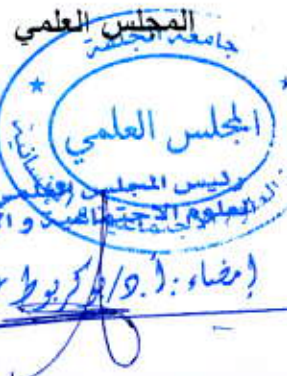 المجلس العلمي
جامعة الجلفة
المجلس العلمي
رئيس المجلس العلمي
العلوم الاجتماعية و
إمضاء: أ.د/